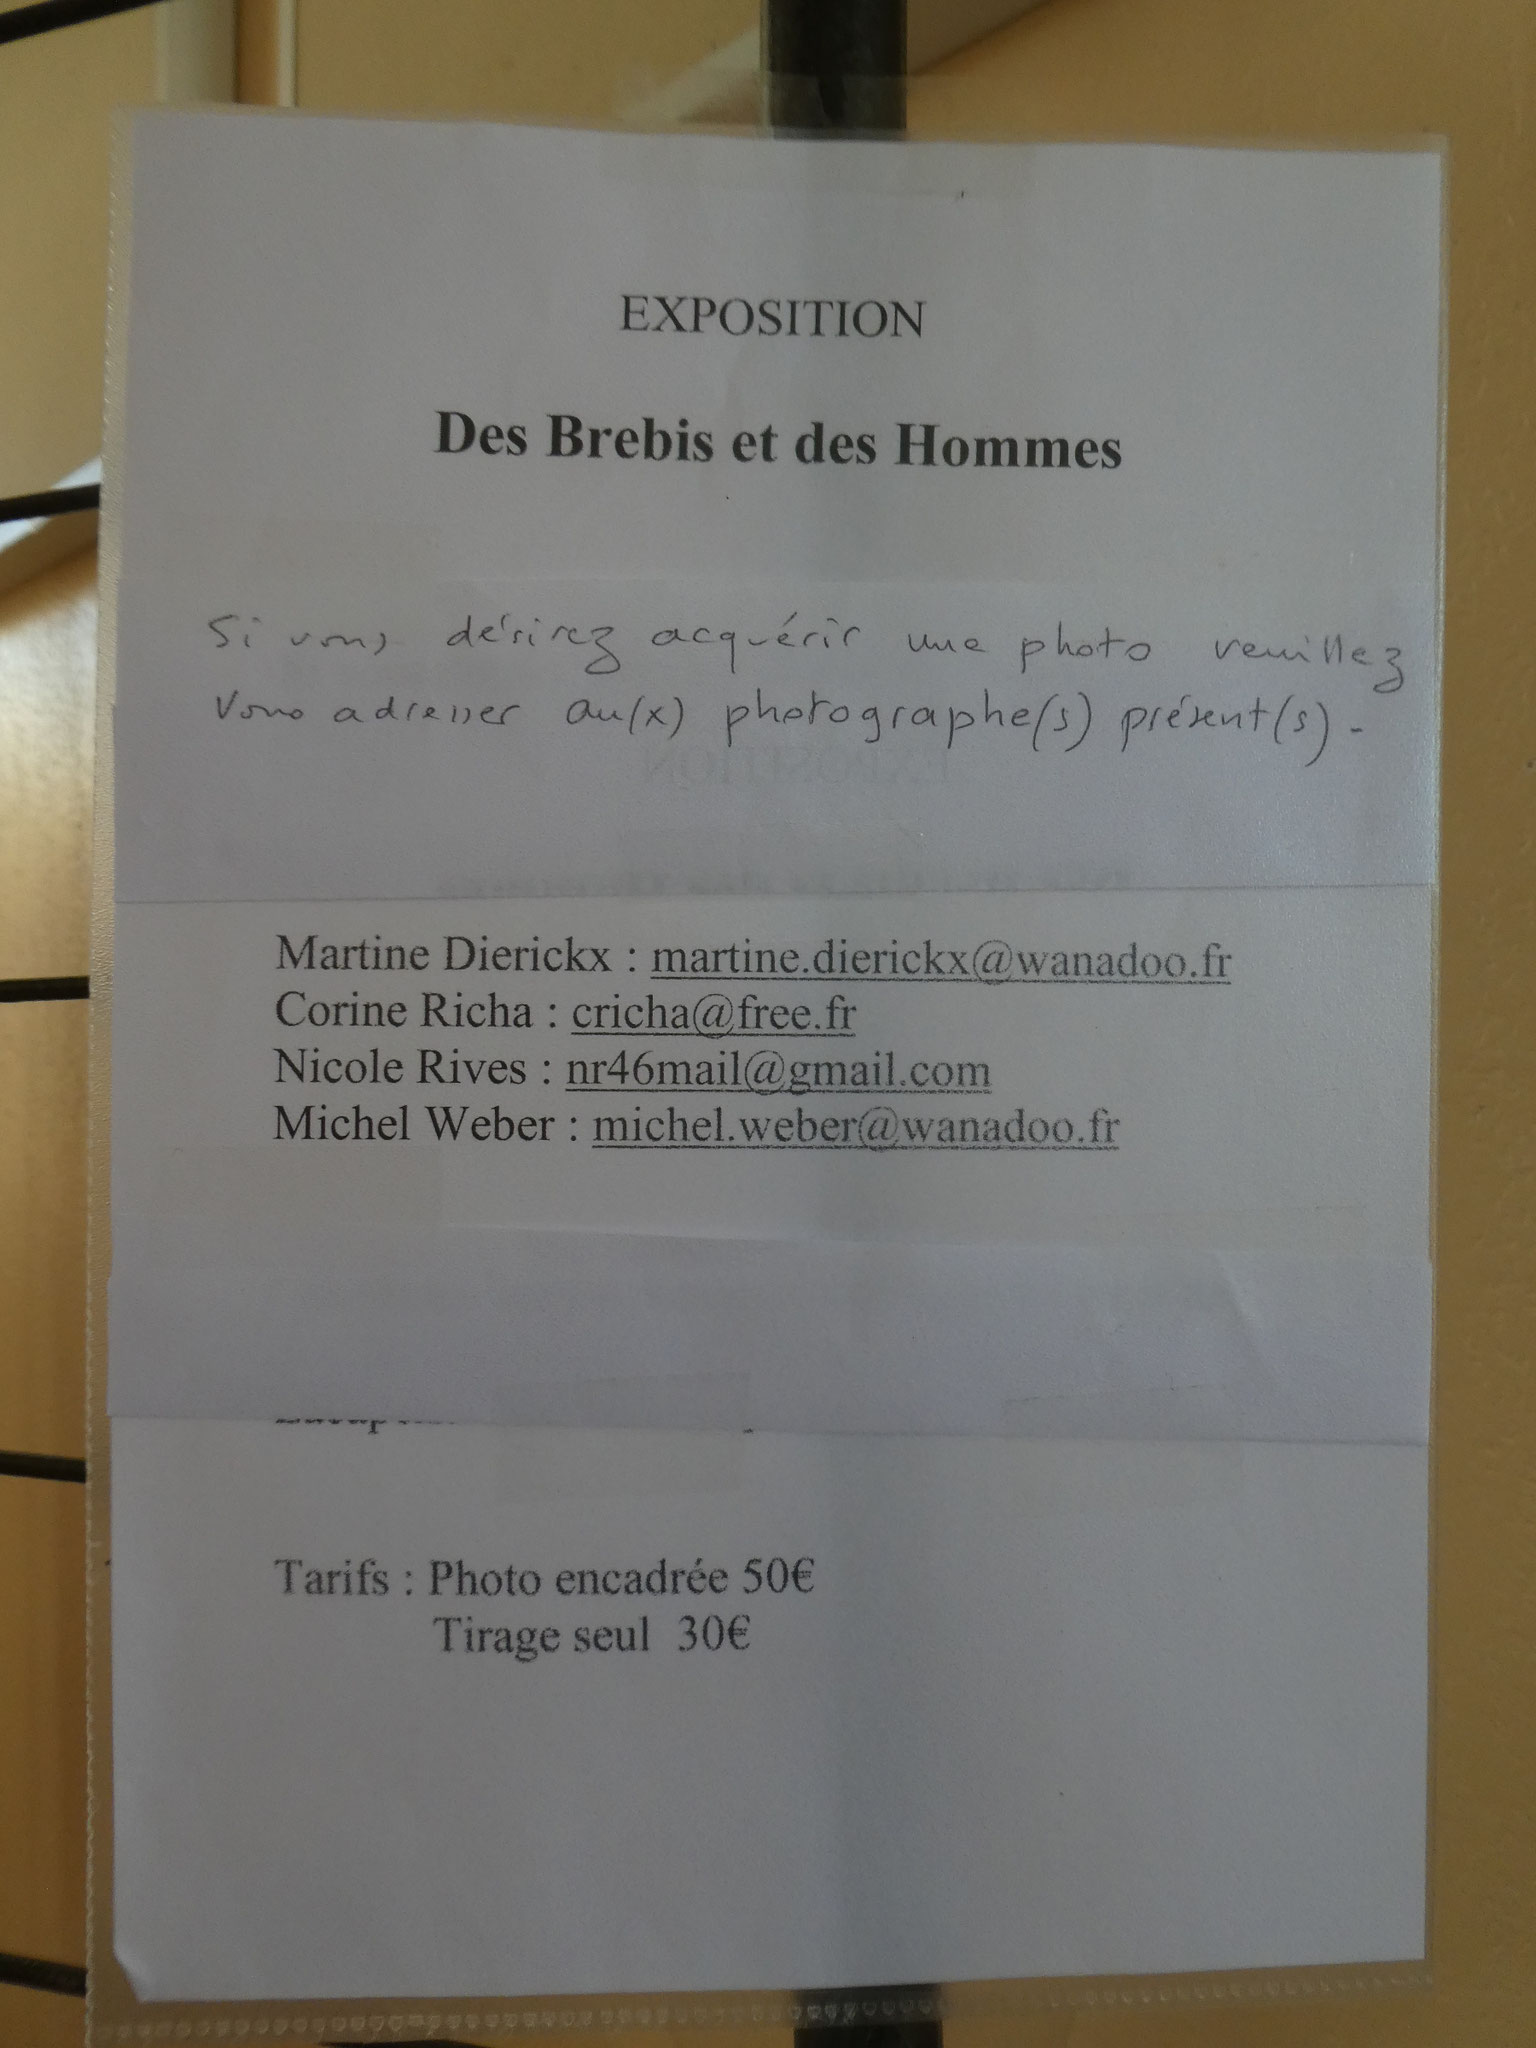 EXPOSITION
Des Brebis et des Hommes
Si vous désirez acquérir une photo veuillez
vous adresser au(x) photographe(s) présent(s).
Martine Dierickx : martine.dierickx@wanadoo.fr
Corine Richa : cricha@free.fr
Nicole Rives : nr46mail@gmail.com
Michel Weber : michel.weber@wanadoo.fr
Tarifs : Photo encadrée 50€
Tirage seul 30€